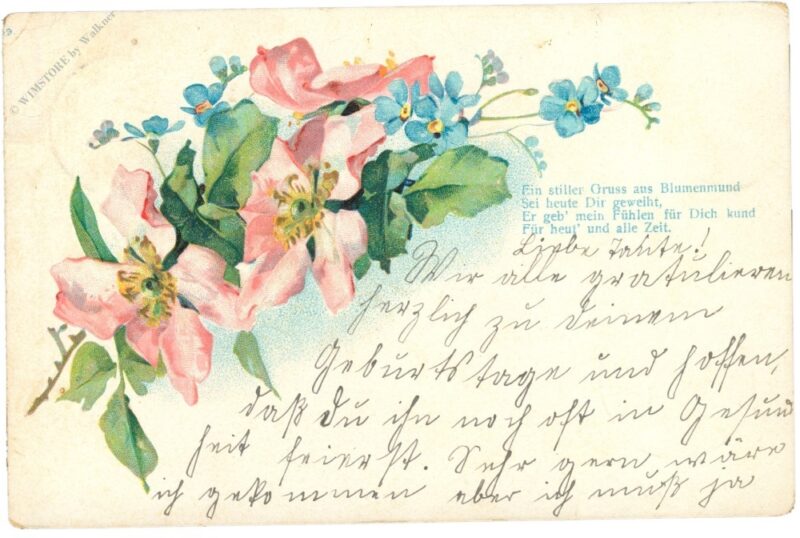 © WIMSTORE by Walkner
Ein stiller Gruss aus Blumenmund
Sei heute Dir geweiht,
Er geb' mein Fühlen für Dich kund
Für heut' und alle Zeit.
Liebe Tante!
Wir alle gratulieren
herzlich zu deinem
Geburtstage und hoffen,
daß du ihn noch oft in Gesund
heit feierst. Sehr gern wäre
ich gekommen aber ich muß ja